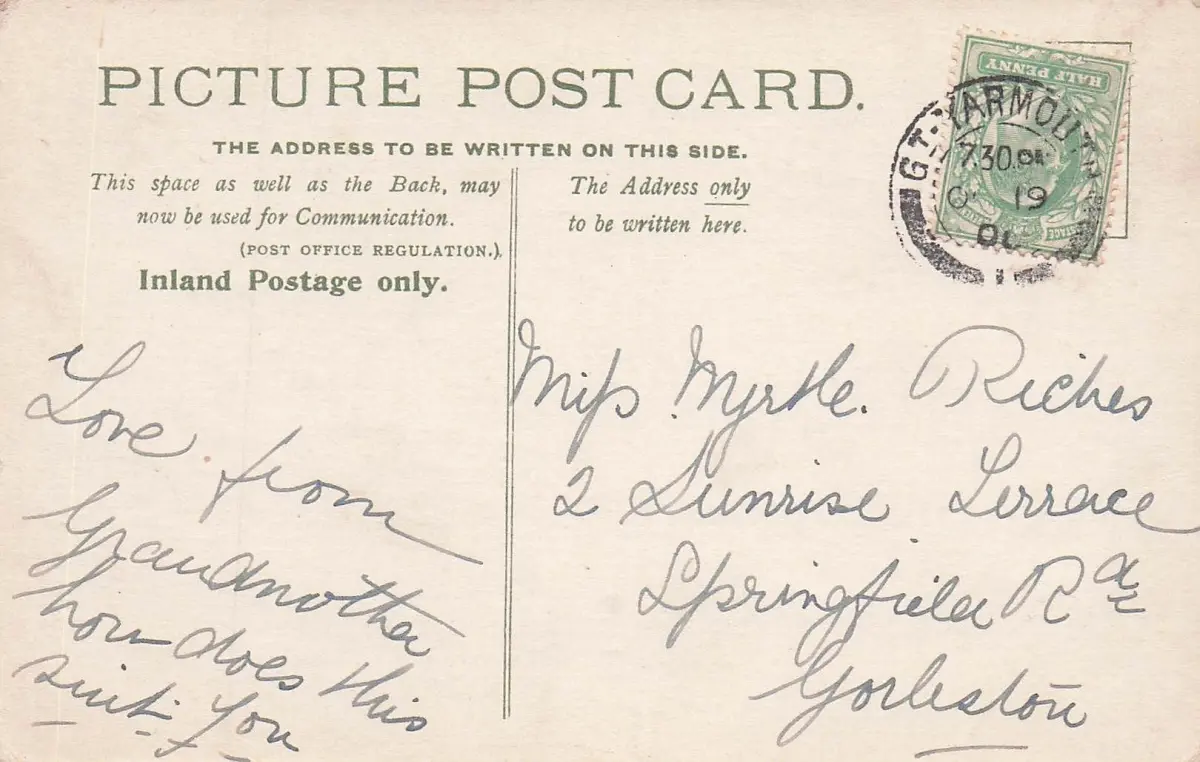 PICTURE POST CARD.
THE ADDRESS TO BE WRITTEN ON THIS SIDE.
This space as well as the Back, may
now be used for Communication.
(POST OFFICE REGULATION.)
Inland Postage only.
The Address only
to be written here.
HALF PENNY
GT. YARMOUTH
7.30
19
Love from
Grandmother
how does this
suit you
Miss Myrtle. Riches
2 Sunrise Terrace
Springfield Rd
Gorleston